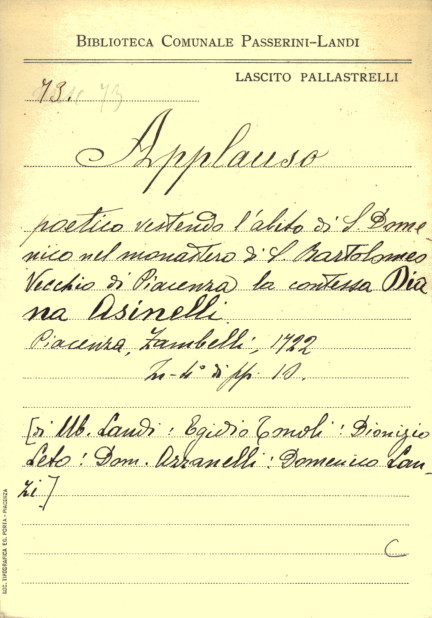 BIBLIOTECA COMUNALE PASSERINI-LANDI
LASCITO PALLASTRELLI
73. 73
Applauso
poetico vestendo l'abito di S. Dome-
nico nel monastero di S. Bartolomeo
Vecchio di Piacenza la contessa Dia
na Asinelli.
Piacenza, Zambelli, 1722
In-4° di pp. 18.
[di Ub. Landi: Egidio: Dionizio
Leto: Dom. Azzanelli: Domenico Lan-
zi]
C
SOC. TIPOGRAFICA ED. PORTA - PIACENZA